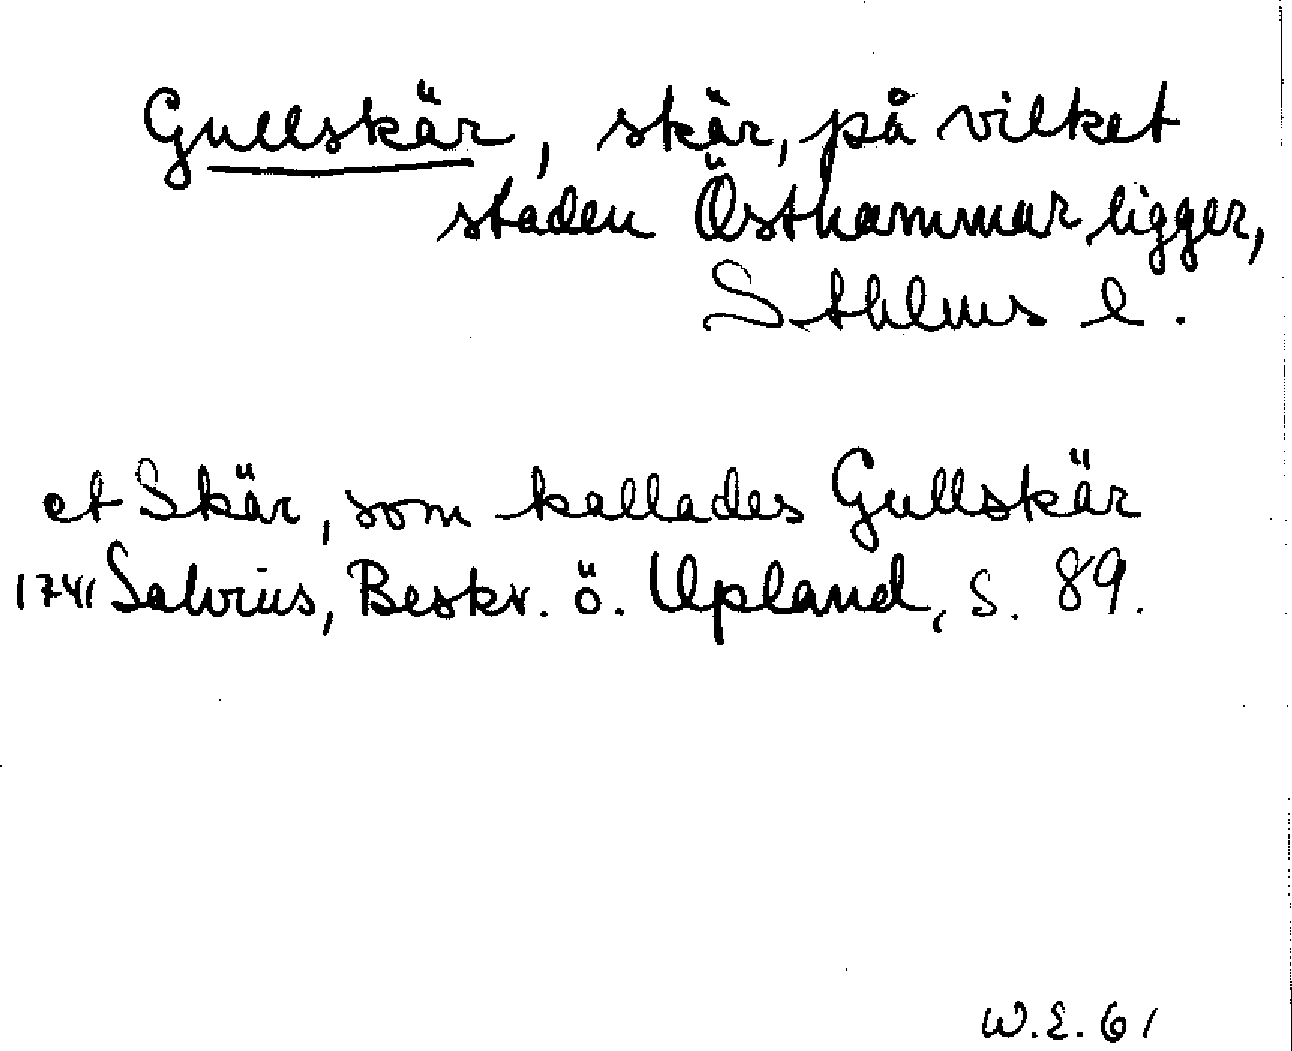 Gullskär, skär, på vilket
staden Östhammar ligger,
Sthlms l.
et Skär, som kallades Gullskär
1741 Salvius, Beskr. ö. Upland, S. 89.
W.E. 61